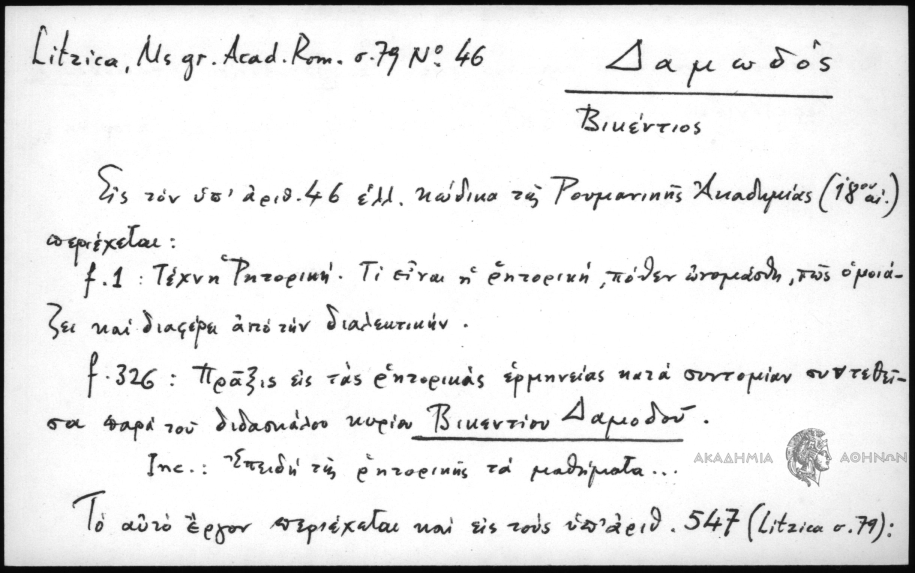 Litzica, Ms gr. Acad. Rom. σ. 79 Nº 46
Δαμωδὸς
Βικέντιος
Εἰς τὸν ὑπ' ἀριθ. 46 ἑλλ. κώδικα τῆς Ρουμανικῆς Ἀκαδημίας (18ου αἰ.)
περιέχεται:
f. 1 : Τέχνη Ῥητορική. Τί εἶναι ἡ ῥητορική, πόθεν ὠνομάσθη, πῶς ὁμοιά-
ζει καὶ διαφέρει ἀπὸ τὴν διαλεκτικήν.
f. 326 : Πρᾶξις εἰς τὰς ῥητορικὰς ἑρμηνείας κατὰ συντομίαν συντεθεῖ-
σα παρὰ τοῦ διδασκάλου κυρίου Βικεντίου Δαμοδοῦ.
Inc.: Ἐπειδὴ τῆς ῥητορικῆς τὰ μαθήματα...
ΑΚΑΔΗΜΙΑ ΑΘΗΝΩΝ
Τὸ αὐτὸ ἔργον περιέχεται καὶ εἰς τοὺς ὑπ' ἀριθ. 547 (Litzica σ. 79):